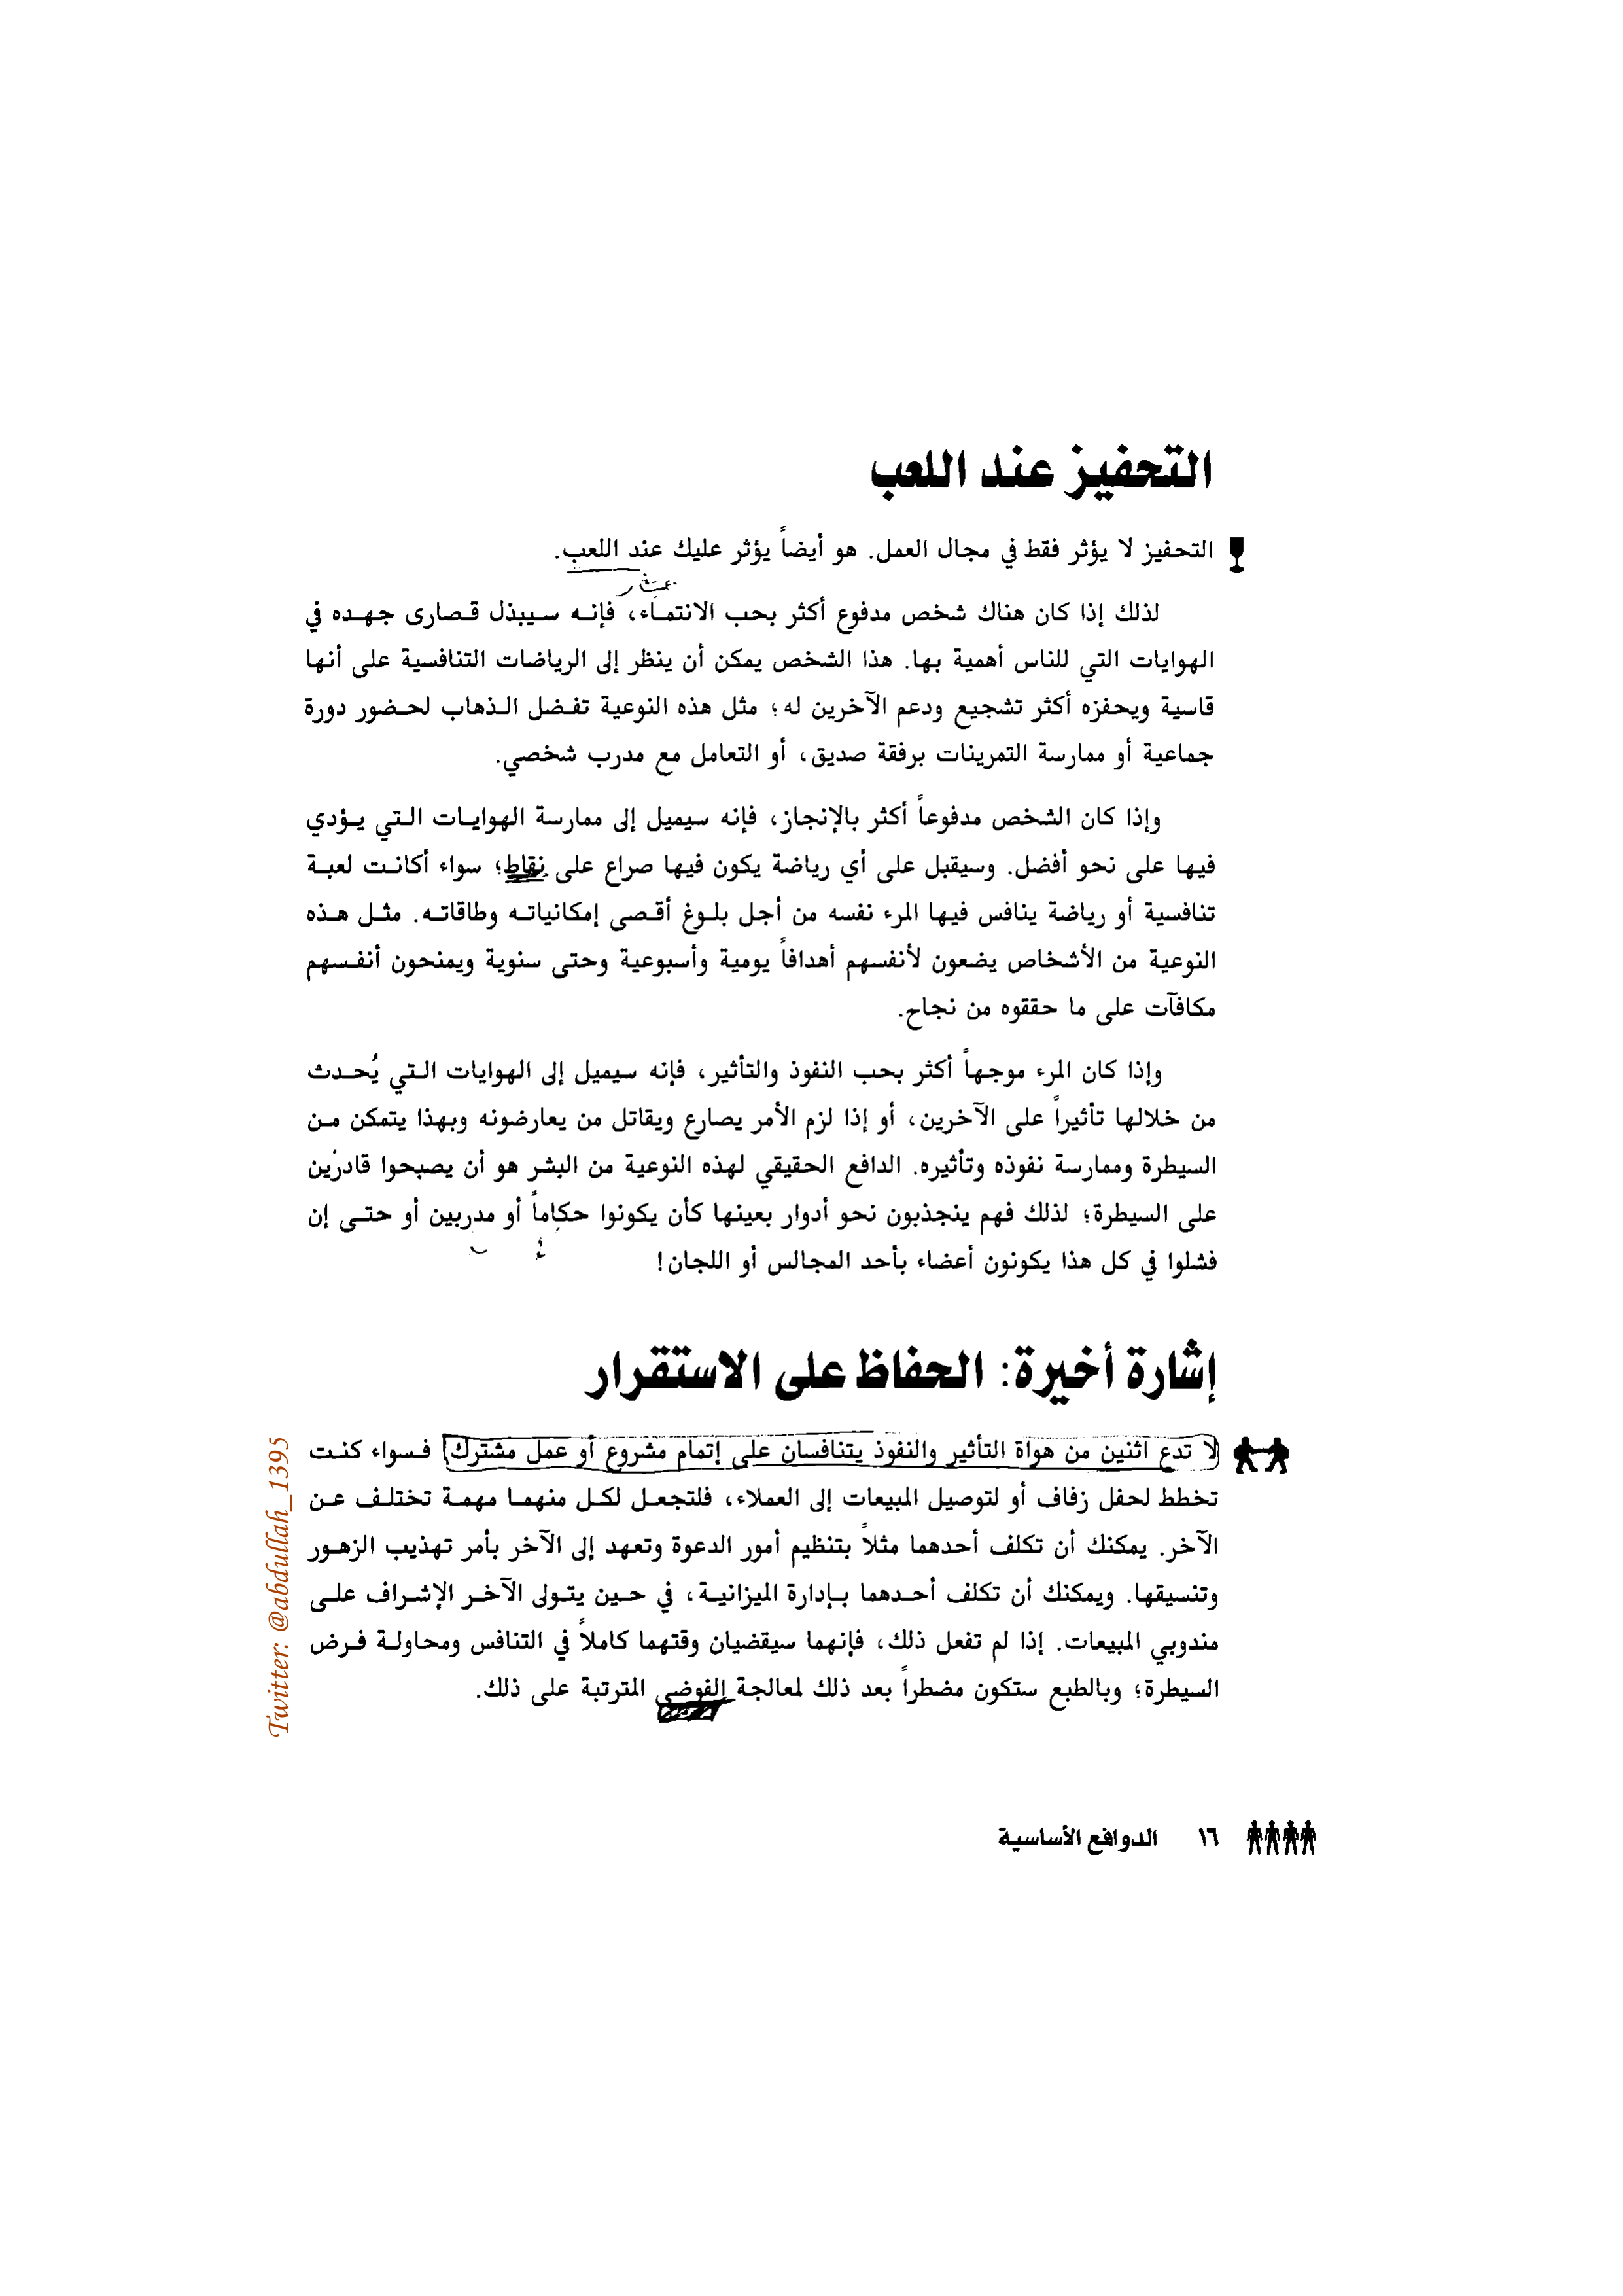 التحفيز عند اللعب
التحفيز لا يؤثر فقط في مجال العمل. هو أيضاً يؤثر عليك عند اللعب.
لذلك إذا كان هناك شخص مدفوع أكثر بحب الانتمـاء، فإنـه سـيبذل قـصارى جهـده في
الهوايات التي للناس أهمية بها. هذا الشخص يمكن أن ينظر إلى الرياضات التنافسية على أنها
قاسية ويحفزه أكثر تشجيع ودعم الآخرين له؛ مثل هذه النوعية تفـضل الـذهاب لحـضور دورة
جماعية أو ممارسة التمرينات برفقة صديق، أو التعامل مع مدرب شخصي.
وإذا كان الشخص مدفوعاً أكثر بالإنجاز، فإنه سيميل إلى ممارسة الهوايـات الـتي يـؤدي
فيها على نحو أفضل. وسيقبل على أي رياضة يكون فيها صراع على نقاط؛ سواء أكانـت لعبـة
تنافسية أو رياضة ينافس فيها المرء نفسه من أجل بلـوغ أقـصى إمكانياتـه وطاقاتـه. مثـل هـذه
النوعية من الأشخاص يضعون لأنفسهم أهدافاً يومية وأسبوعية وحتى سنوية ويمنحون أنفـسهم
مكافآت على ما حققوه من نجاح.
وإذا كان المرء موجهاً أكثر بحب النفوذ والتأثير، فإنه سيميل إلى الهوايات الـتي يُحـدث
من خلالها تأثيراً على الآخرين، أو إذا لزم الأمر يصارع ويقاتل من يعارضونه وبهذا يتمكن مـن
السيطرة وممارسة نفوذه وتأثيره. الدافع الحقيقي لهذه النوعية من البشر هو أن يصبحوا قادرين
على السيطرة؛ لذلك فهم ينجذبون نحو أدوار بعينها كأن يكونوا حكاماً أو مدربين أو حتـى إن
فشلوا في كل هذا يكونون أعضاء بأحد المجالس أو اللجان!
إشارة أخيرة: الحفاظ على الاستقرار
لا تدع اثنين من هواة التأثير والنفوذ يتنافسان على إتمام مشروع أو عمل مشترك فـسواء كنـت
تخطط لحفل زفاف أو لتوصيل المبيعات إلى العملاء، فلتجعـل لكـل منهمـا مهمـة تختلـف عـن
الآخر. يمكنك أن تكلف أحدهما مثلاً بتنظيم أمور الدعوة وتعهد إلى الآخر بأمر تهذيب الزهـور
وتنسيقها. ويمكنك أن تكلف أحـدهما بـإدارة الميزانيـة، في حـين يتـولى الآخـر الإشـراف علـى
مندوبي المبيعات. إذا لم تفعل ذلك، فإنهما سيقضيان وقتهما كاملاً في التنافس ومحاولـة فـرض
السيطرة؛ وبالطبع ستكون مضطراً بعد ذلك لمعالجة الفوضى المترتبة على ذلك.
١٦ الدوافع الأساسية
Twitter: @abdullah_1395